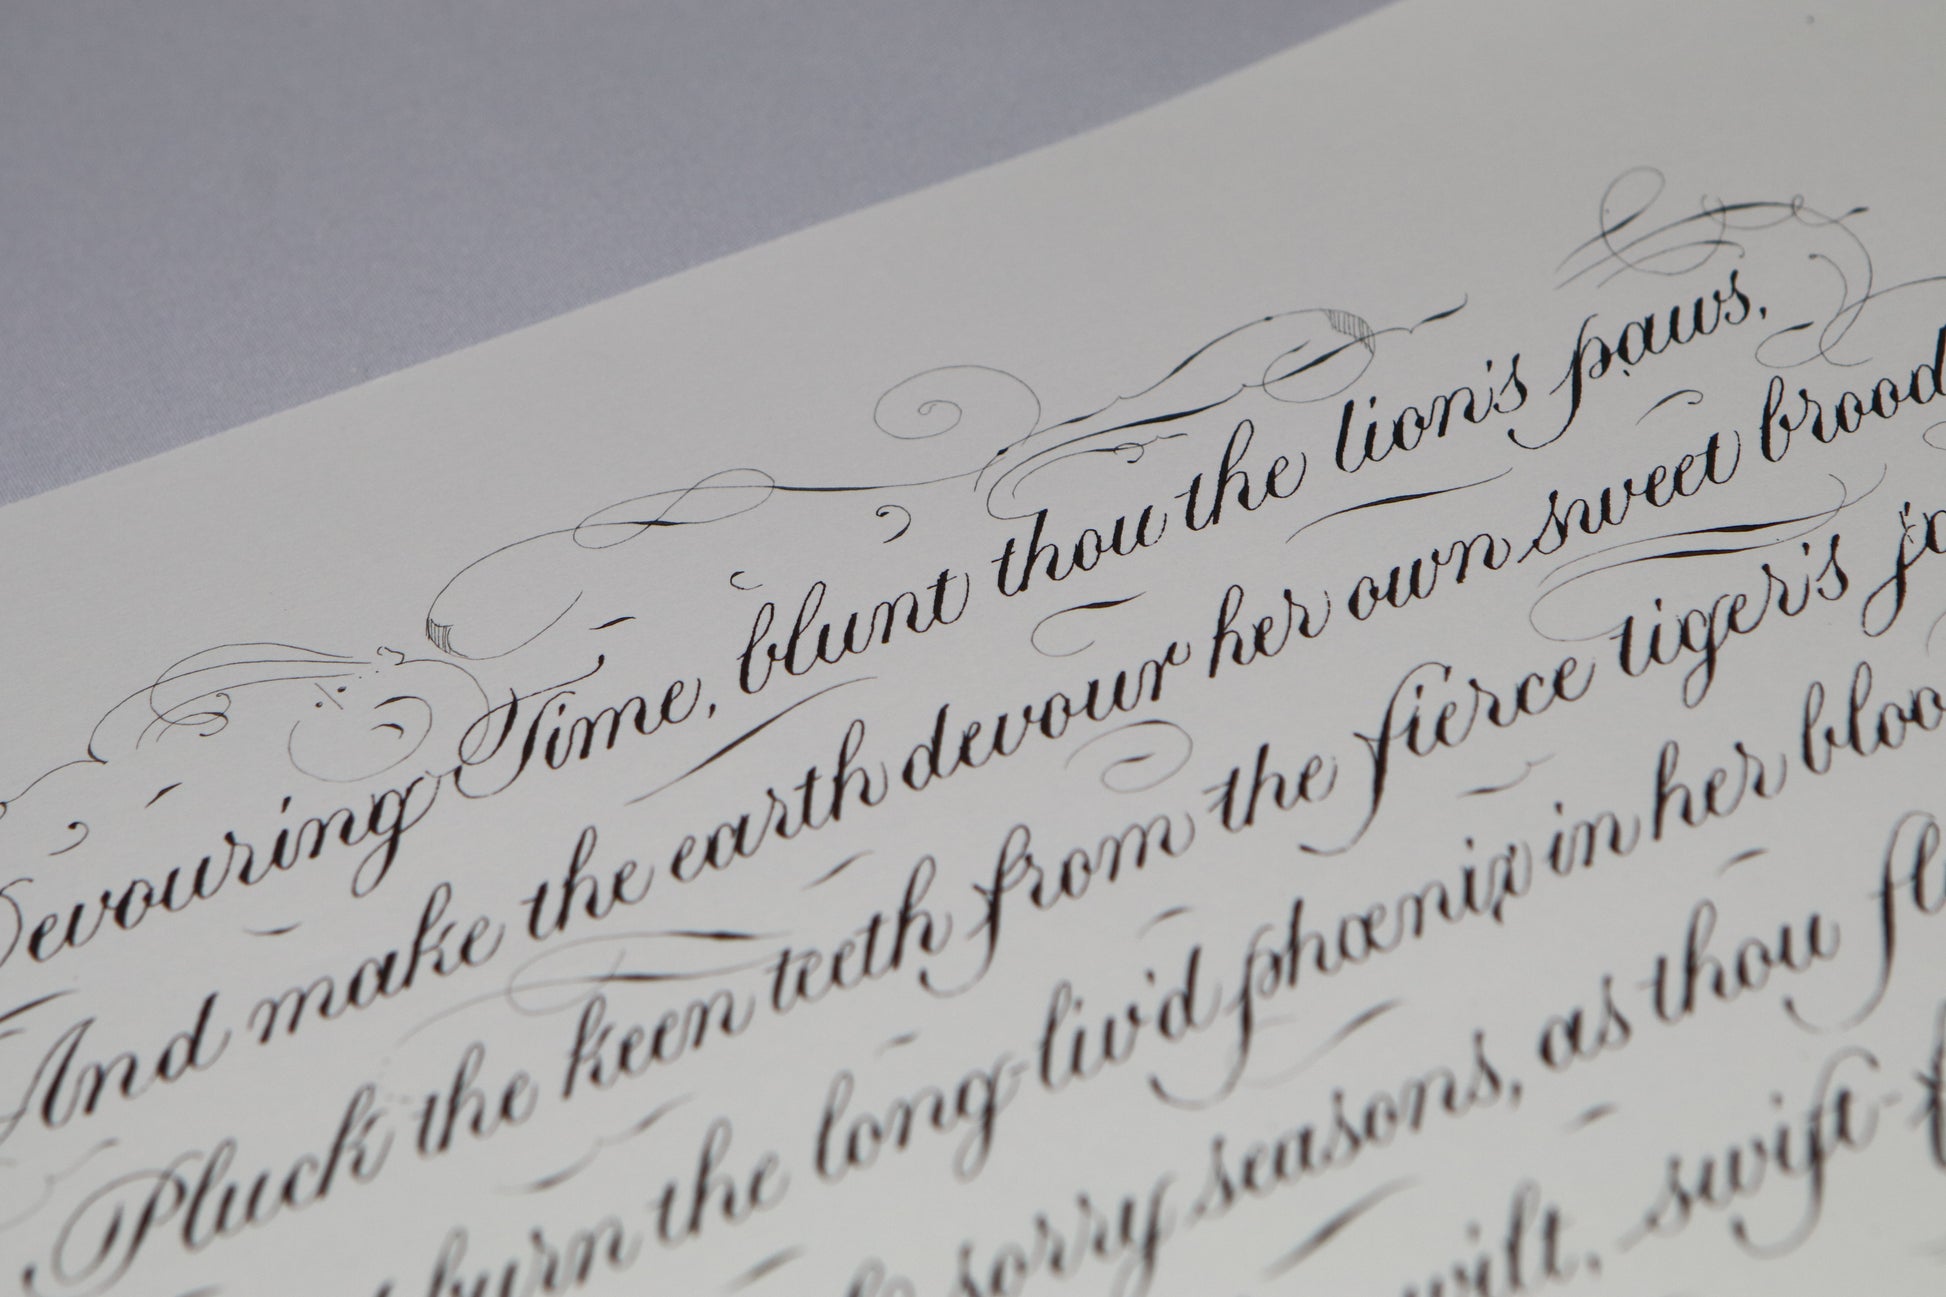 Devouring Time, blunt thou the lion's paws,
And make the earth devour her own sweet brood
Pluck the keen teeth from the fierce tiger's
burn the long-liv'd phœnix in her
sorry seasons, as thou
wilt, swift-